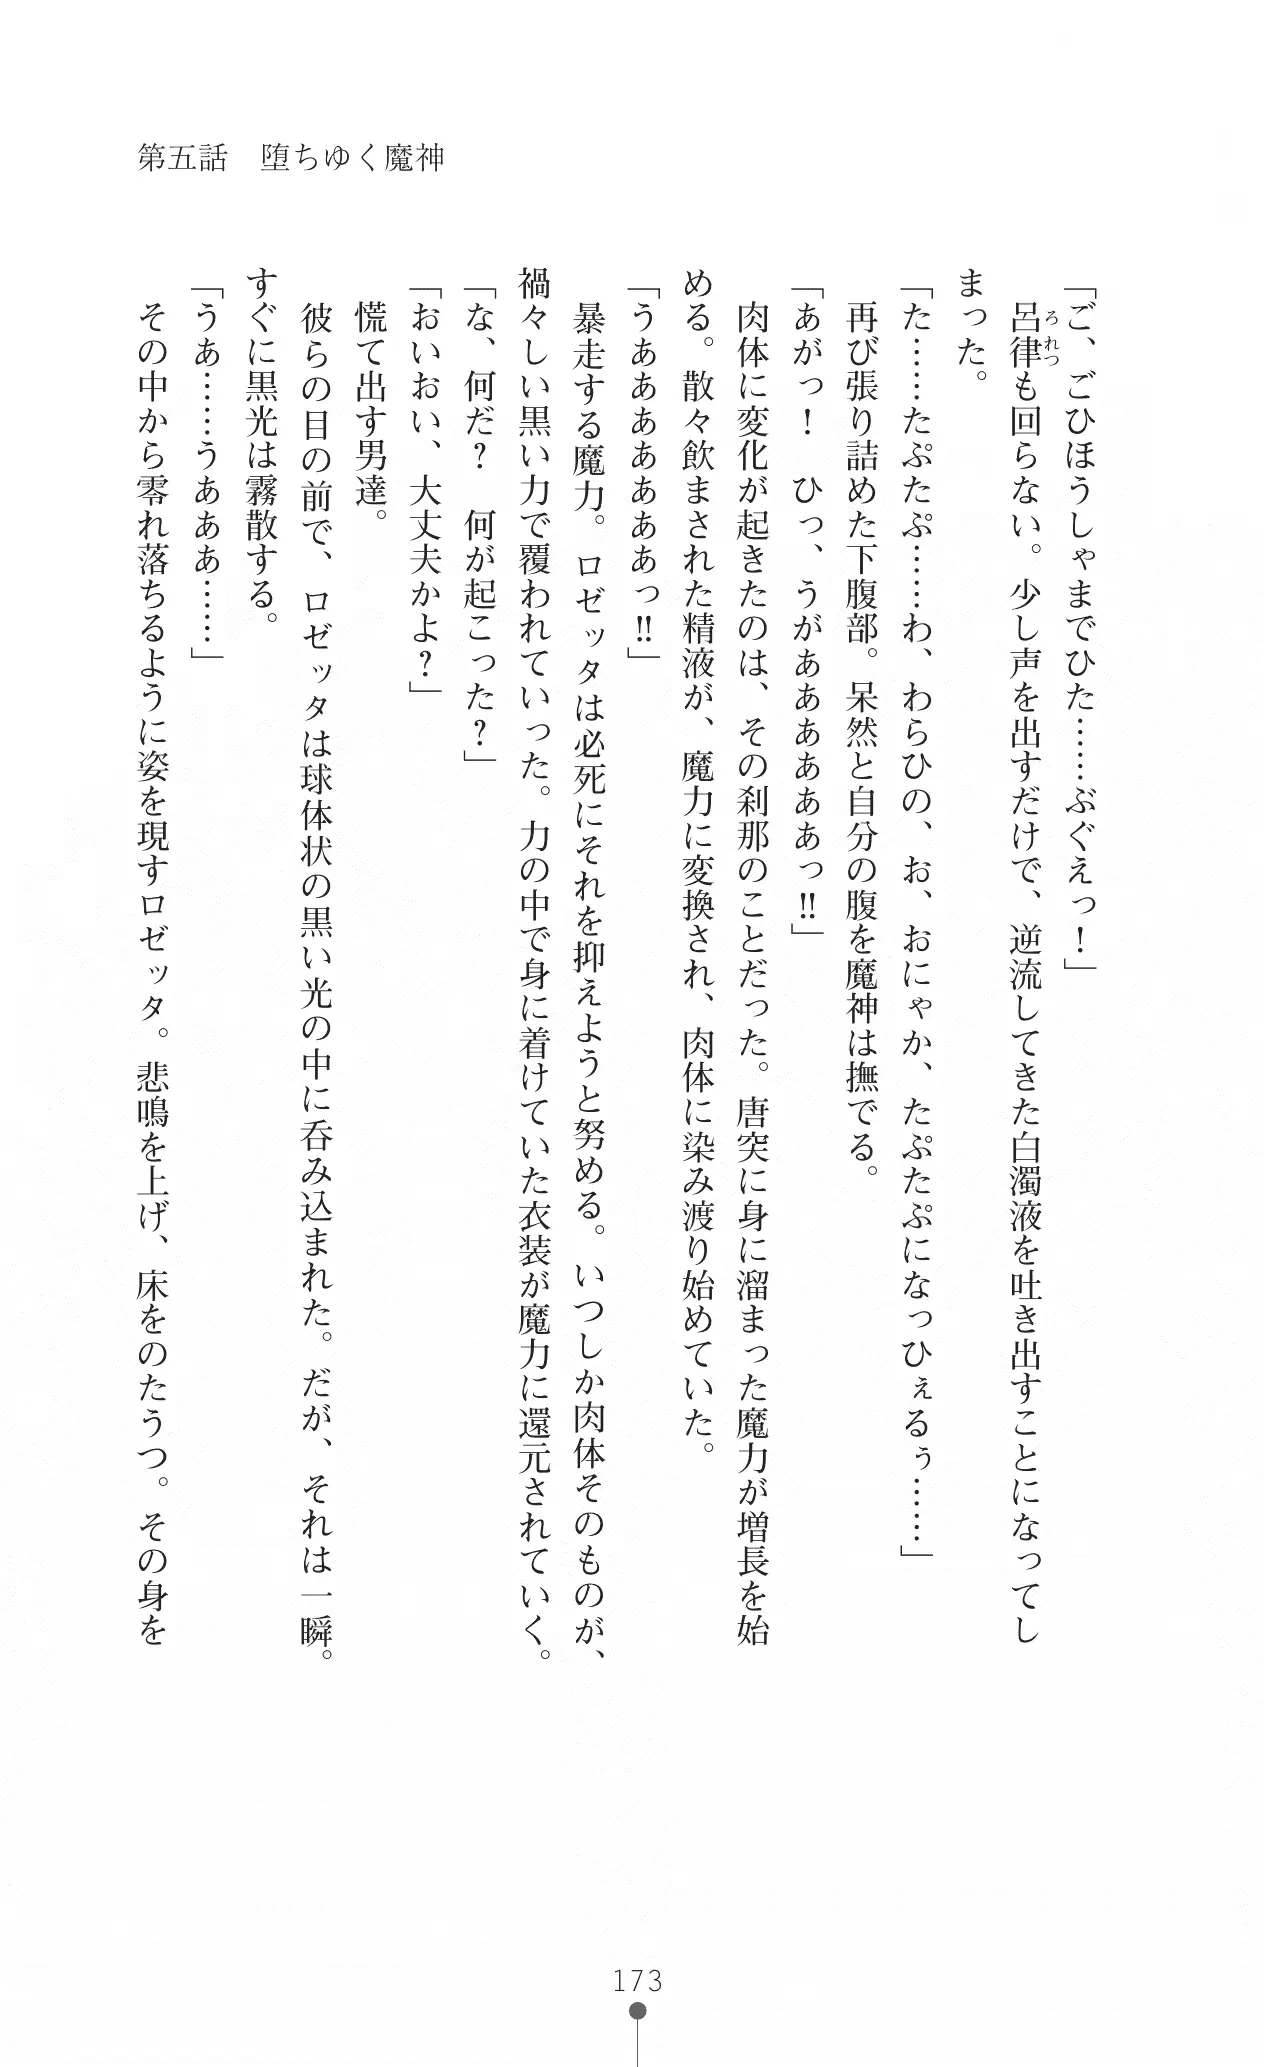 第五話　堕ちゆく魔神
「ご、ごひほうしゃまでひた……ぶぐえっ！」
　呂律も回らない。少し声を出すだけで、逆流してきた白濁液を吐き出すことになってし
ろれつ
まった。
「た……たぷたぷ……わ、わらひの、お、おにゃか、たぷたぷになっひぇるぅ……」
　再び張り詰めた下腹部。呆然と自分の腹を魔神は撫でる。
「あがっ！　ひっ、うがああああああっ‼」
　肉体に変化が起きたのは、その刹那のことだった。唐突に身に溜まった魔力が増長を始
める。散々飲まされた精液が、魔力に変換され、肉体に染み渡り始めていた。
「うああああああああっ‼」
　暴走する魔力。ロゼッタは必死にそれを抑えようと努める。いつしか肉体そのものが、
禍々しい黒い力で覆われていった。力の中で身に着けていた衣装が魔力に還元されていく。
「な、何だ？　何が起こった？」
「おいおい、大丈夫かよ？」
　慌て出す男達。
　彼らの目の前で、ロゼッタは球体状の黒い光の中に呑み込まれた。だが、それは一瞬。
すぐに黒光は霧散する。
「うあ……うあああ……」
　その中から零れ落ちるように姿を現すロゼッタ。悲鳴を上げ、床をのたうつ。その身を
173